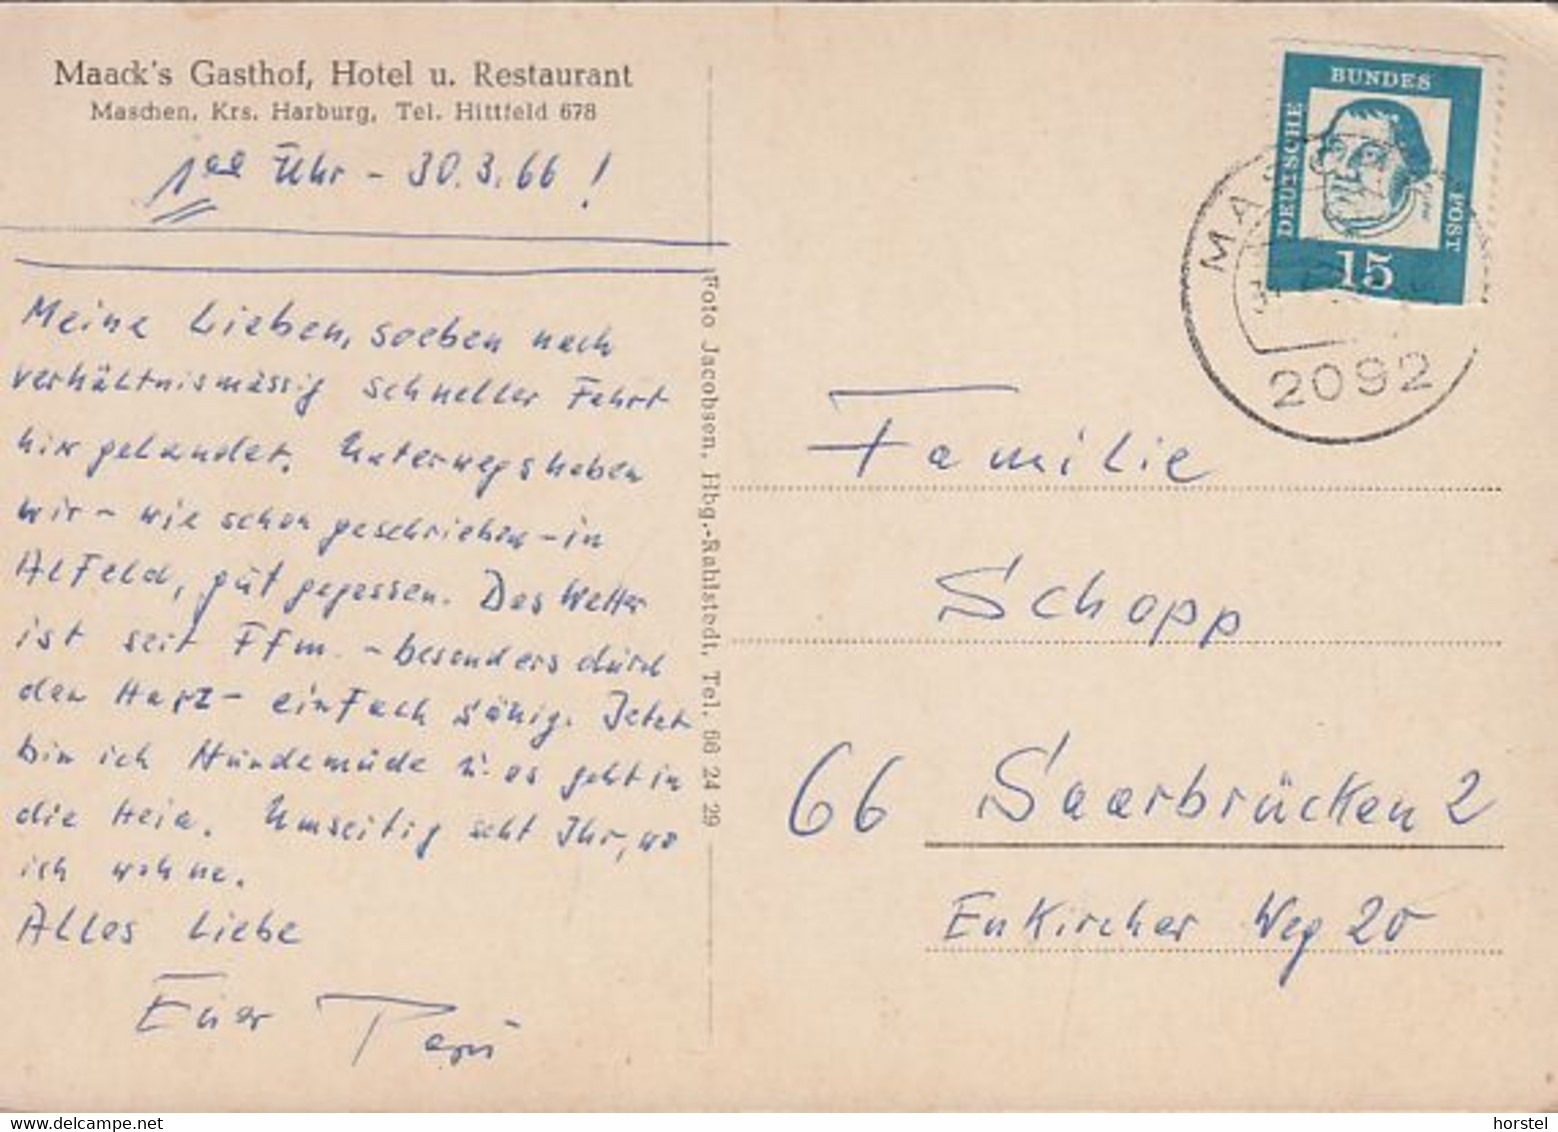 Maack's Gasthof, Hotel u. Restaurant
Maschen, Krs. Harburg, Tel. Hittfeld 678
Uhr - 30.3.66!
Meine Lieben, soeben nach
verhältnismässig schneller Fahrt
hier gelandet. Unterwegs haben
wir - wie schon geschrieben - in
Alfeld, gut gegessen. Das Wetter
ist seit Ffm. - besonders durch
den Harz - einfach sänig. Jetzt
bin ich Hundemüde u. es geht in
die Heia. Umseitig seht Ihr, wo
ich wohne.
Alles Liebe
Euer Papi
Foto Jacobsen, Hbg.-Rahlstedt, Tel. 66 24 29
DEUTSCHE
BUNDES
POST
15
2092
Familie
Schopp
66 Saarbrücken 2
Enkircher Weg 20
www.delcampe.net
horstel